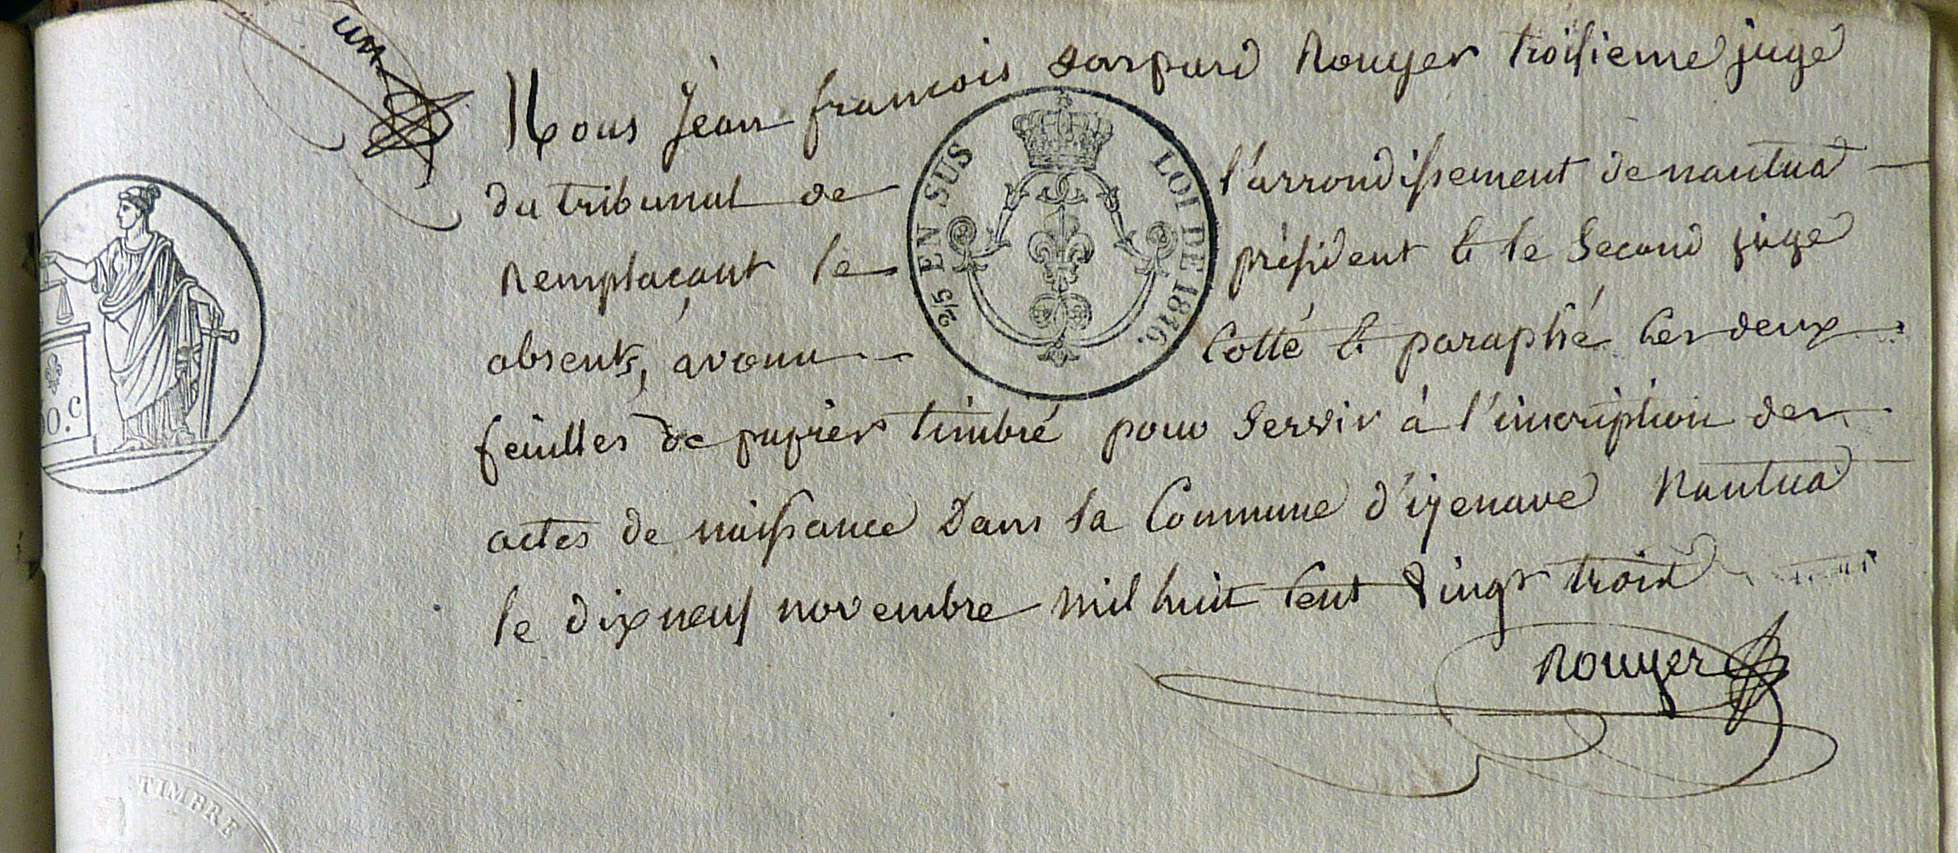 un
Nous Jean francois Gaspard Rouyer troisieme juge
du tribunal de l'arrondissement de nantua
Remplaçant le président & le Second juge
absents, avons Cotté & paraphé les deux
feuilles de papier timbré pour Servir à l'inscription des
actes de naissance Dans la Commune d'izenave Nantua
le dix neuf novembre mil huit Cent vingt trois
Rouyer
2/5 EN SUS
LOI DE 1816.
O.C
TIMBRE